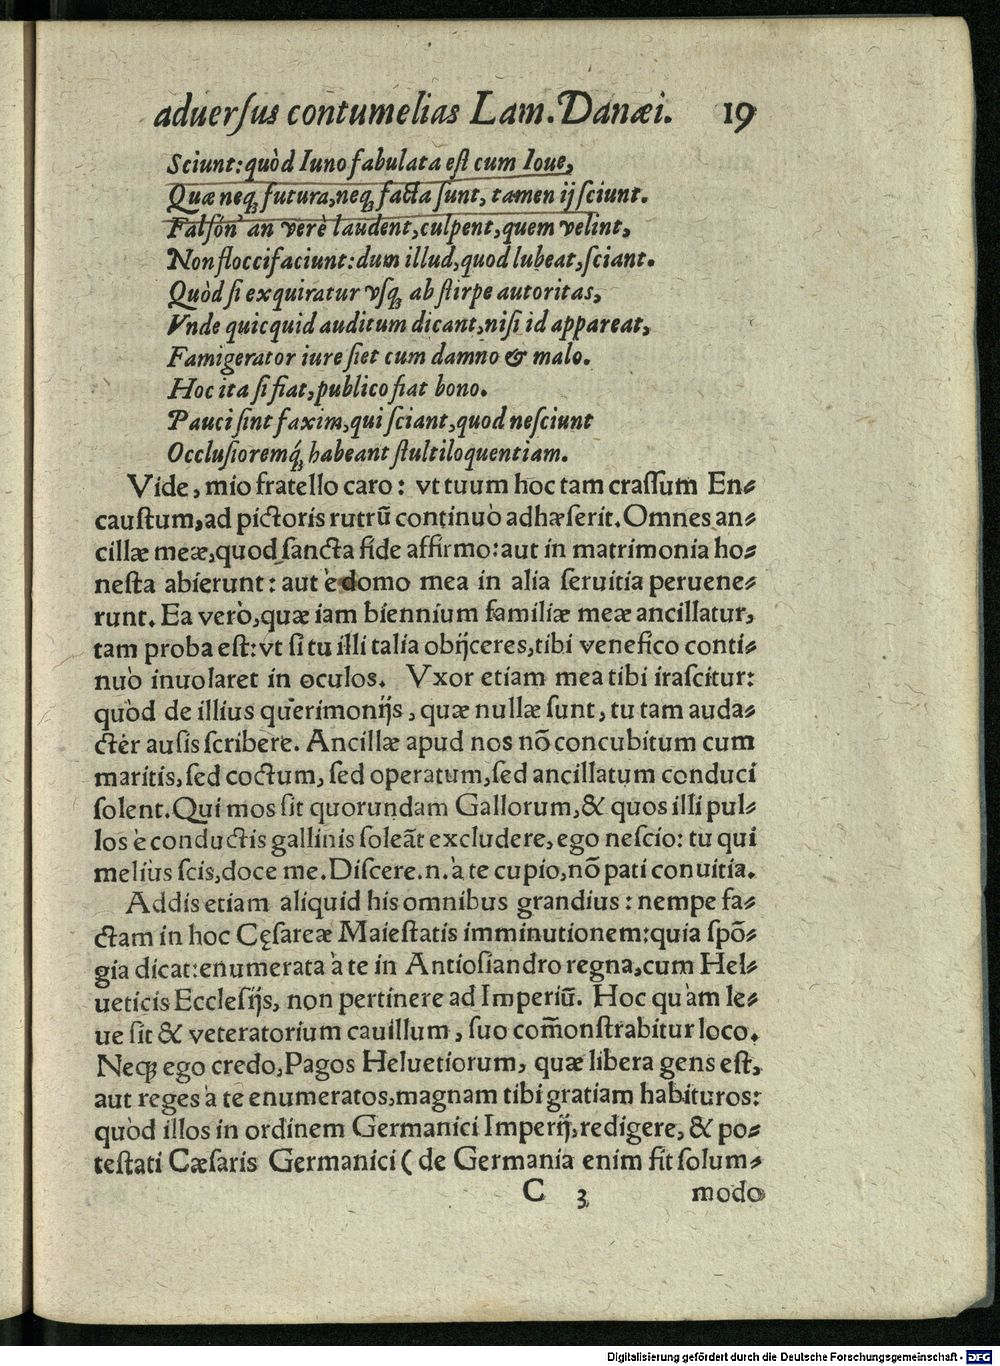 aduerſus contumelias Lam. Danæi. 19
Sciunt: quòd Iuno fabulata eſt cum Ioue,
Quæ neq; futura, neq; facta ſunt, tamen ij ſciunt.
Falſón' an verè laudent, culpent, quem velint,
Non flocci faciunt: dum illud, quod lubeat, ſciant.
Quòd ſi exquiratur vſq; ab ſtirpe autoritas,
Vnde quicquid auditum dicant, niſi id appareat,
Famigerator iure ſiet cum damno & malo.
Hoc ita ſi fiat, publico fiat bono.
Pauci ſint faxim, qui ſciant, quod neſciunt
Occluſioremq́; habeant ſtultiloquentiam.
Vide, mio fratello caro: vt tuum hoc tam craſſum En⸗
cauſtum, ad pictoris rutrū continuò adhæſerit. Omnes an⸗
cillæ meæ, quod ſancta fide affirmo: aut in matrimonia ho⸗
neſta abierunt: aut è domo mea in alia ſeruitia peruene⸗
runt. Ea verò, quæ iam biennium familiæ meæ ancillatur,
tam proba eſt: vt ſi tu illi talia obijceres, tibi venefico conti⸗
nuò inuolaret in oculos. Vxor etiam mea tibi iraſcitur:
quòd de illius querimonijs, quæ nullæ ſunt, tu tam auda⸗
ctèr auſis ſcribere. Ancillæ apud nos nō concubitum cum
maritis, ſed coctum, ſed operatum, ſed ancillatum conduci
ſolent. Qui mos ſit quorundam Gallorum, & quos illi pul⸗
los è conductis gallinis ſoleāt excludere, ego neſcio: tu qui
meliùs ſcis, doce me. Diſcere .n. à te cupio, nō pati conuitia.
Addis etiam aliquid his omnibus grandius: nempe fa⸗
ctam in hoc Cęſareæ Maieſtatis imminutionem: quia ſpō⸗
gia dicat: enumerata à te in Antioſiandro regna, cum Hel⸗
ueticis Eccleſijs, non pertinere ad Imperiū. Hoc quàm le⸗
ue ſit & veteratorium cauillum, ſuo com̄onſtrabitur loco.
Neq; ego credo, Pagos Heluetiorum, quæ libera gens eſt,
aut reges à te enumeratos, magnam tibi gratiam habituros:
quòd illos in ordinem Germanici Imperij, redigere, & po⸗
teſtati Cæſaris Germanici ( de Germania enim fit ſolum⸗
C 3 modo
Digitalisierung gefördert durch die Deutsche Forschungsgemeinschaft - DFG